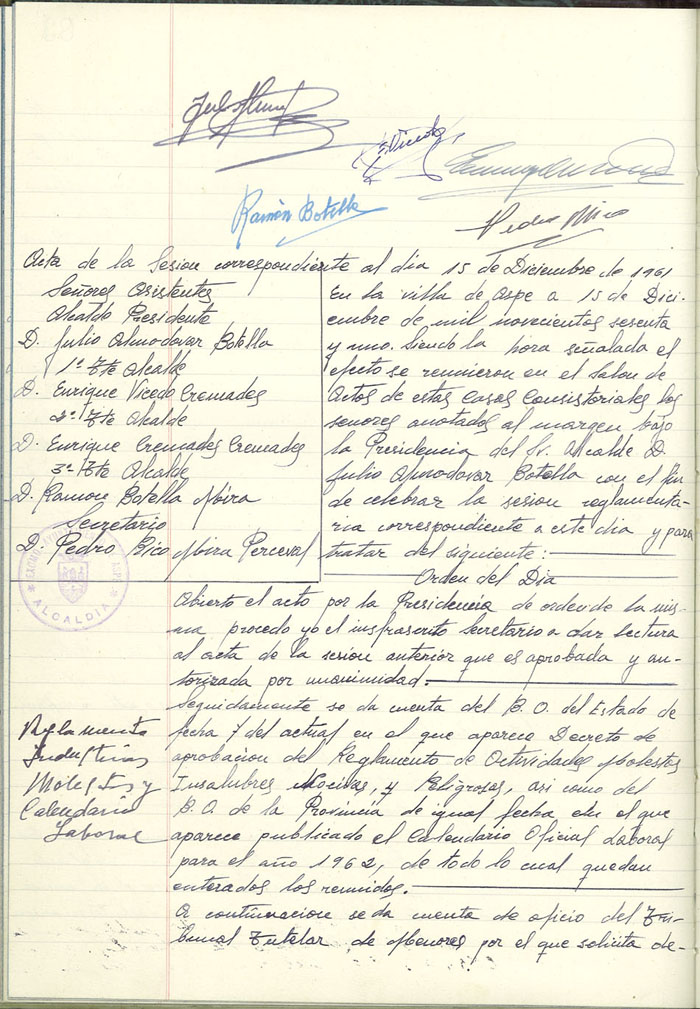 Ramón Botella
Pedro Mira
Acta de la Sesion correspondiente al dia 15 de Diciembre de 1961
Señores Asistentes
Alcalde Presidente
D. Julio Almodovar Botella
1º Tte Alcalde
D. Enrique Vicedo Cremades
2º Tte Alcalde
D. Enrique Cremades Cremades
3º Tte Alcalde
D. Ramon Botella Mira
Secretario
D. Pedro Mira Perceval
En la villa de Aspe a 15 de Dici-
embre de mil novecientos sesenta
y uno. Siendo la hora señalada el
efecto se reunieron en el Salon de
Actos de estas Casas Consistoriales los
señores anotados al margen bajo
la Presidencia del Sr. Alcalde D.
Julio Almodovar Botella con el fin
de celebrar la sesion reglamenta-
ria correspondiente a este dia y para
tratar del siguiente:
Orden del Dia
ALCALDIA
Abierto el acto por la Presidencia de orden de la mis-
ma procedo yo el insfrascrito Secretario a dar lectura
al acta de la sesion anterior que es aprobada y au-
torizada por unanimidad.
Reglamento
Industrias
Molestas y
Calendario
Laboral
Seguidamente se da cuenta del B. O. del Estado de
fecha 7 del actual en el que aparece Decreto de
aprobacion del Reglamento de Actividades Molestas
Insalubres Nocivas, y Peligrosas, asi como del
B. O. de la Provincia de igual fecha en el que
aparece publicado el Calendario Oficial Laboral
para el año 1962, de todo lo cual quedan
enterados los reunidos.
A continuacion se da cuenta de oficio del Tri-
bunal Tutelar de Menores por el que solicita de-